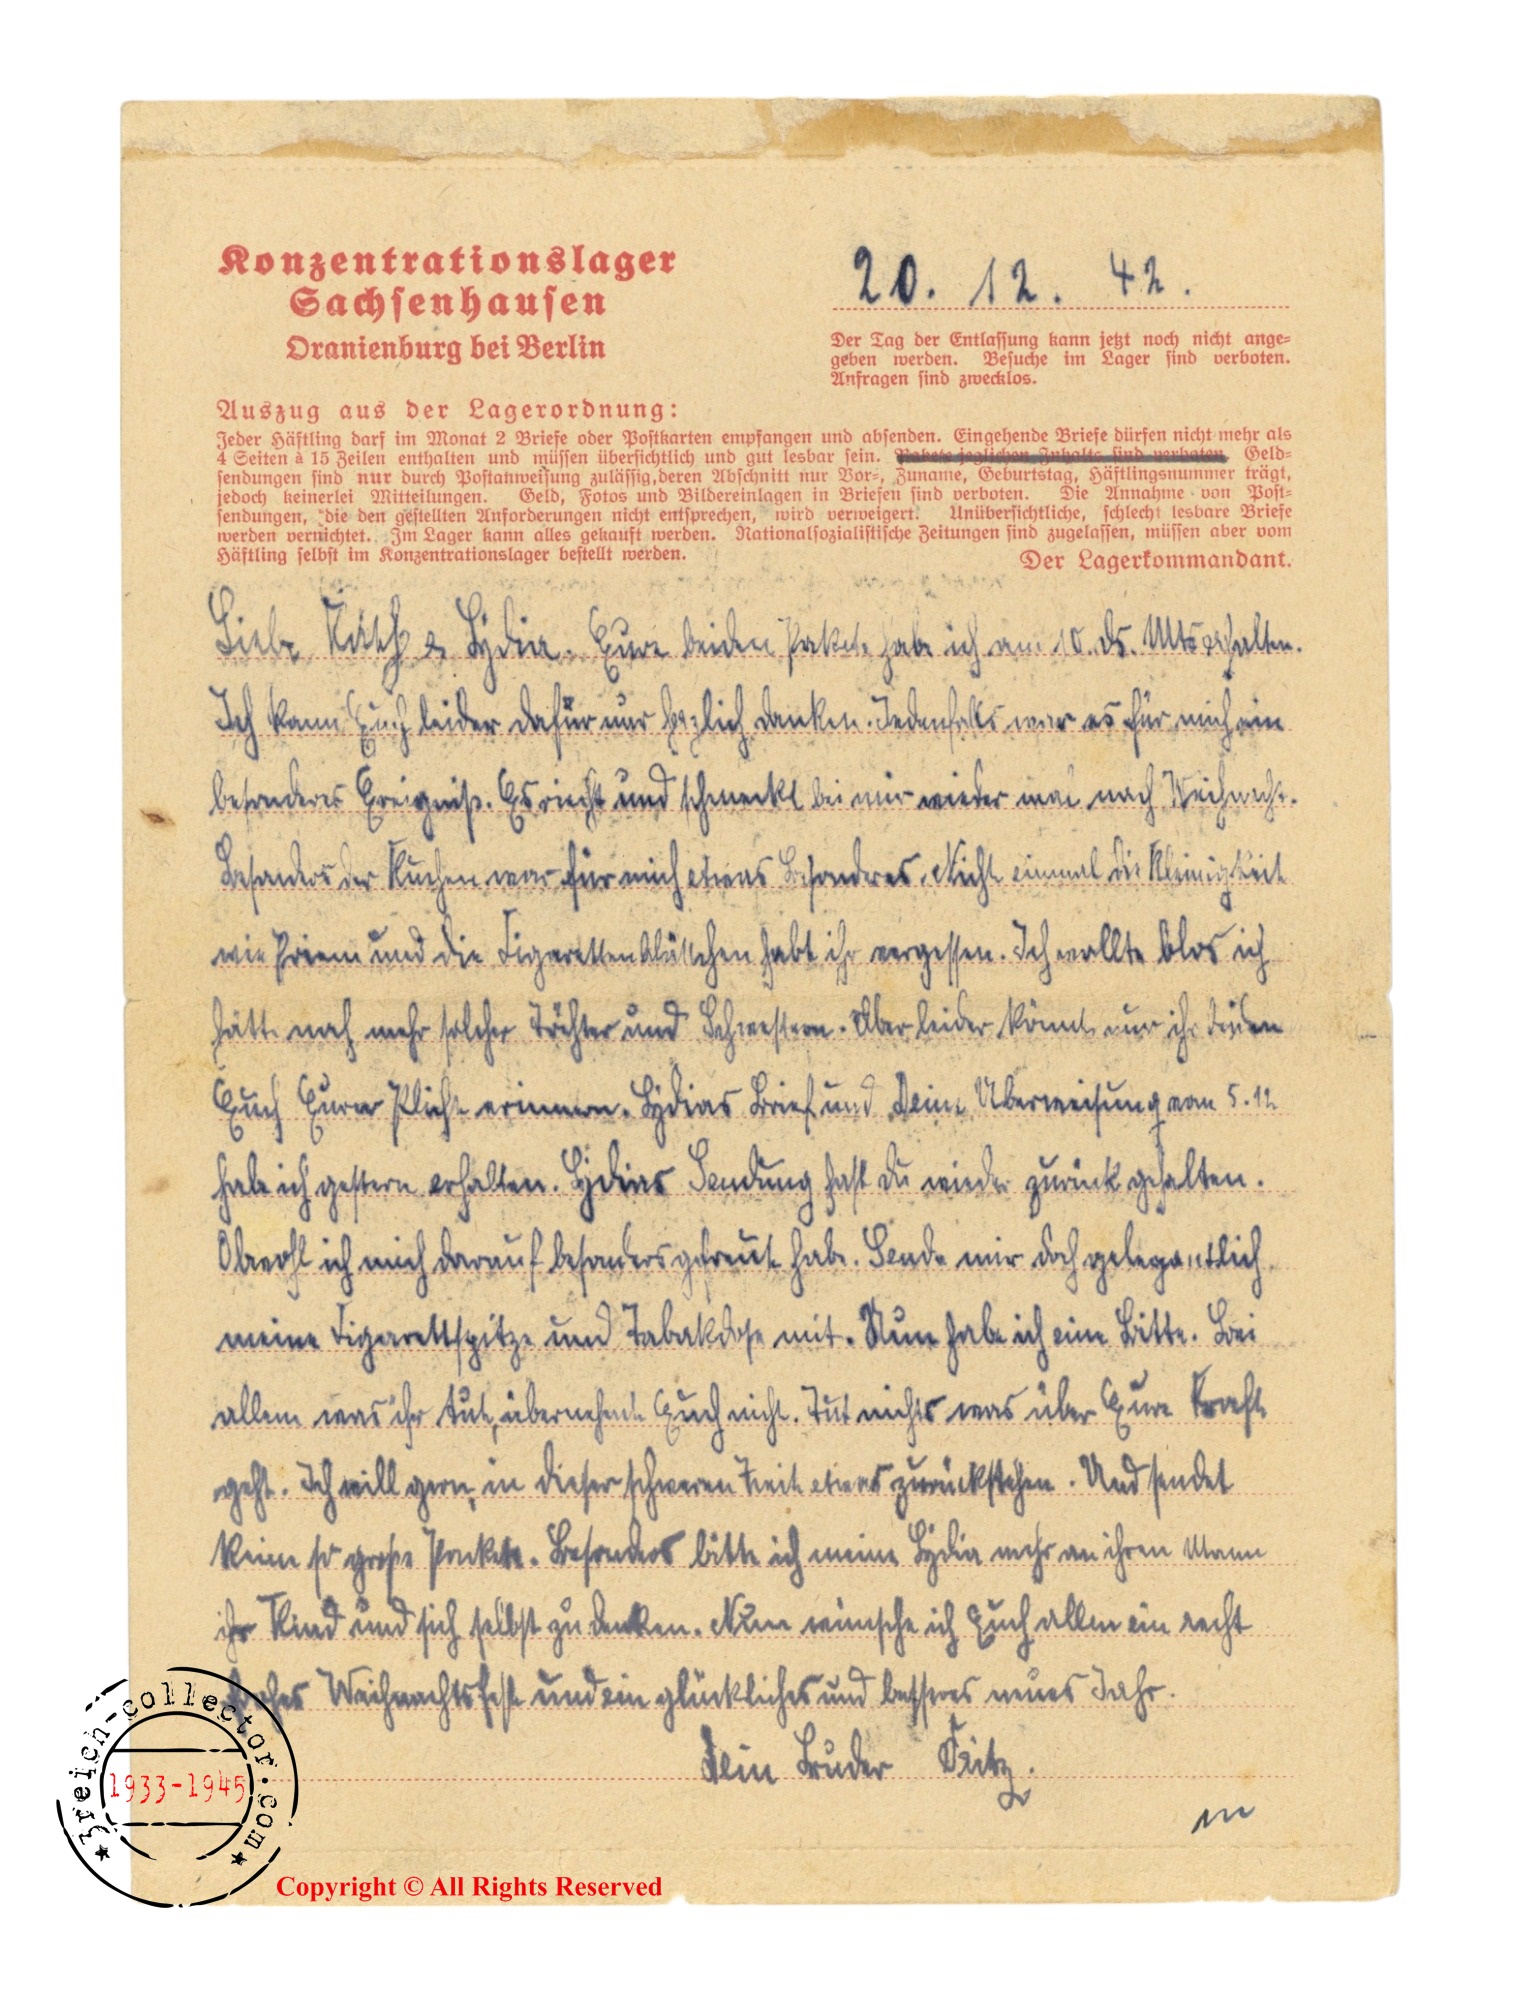 Konzentrationslager
Sachsenhausen
Oranienburg bei Berlin
20. 12. 42.
Der Tag der Entlassung kann jetzt noch nicht ange-
geben werden. Besuche im Lager sind verboten.
Anfragen sind zwecklos.
Auszug aus der Lagerordnung:
Jeder Häftling darf im Monat 2 Briefe oder Postkarten empfangen und absenden. Eingehende Briefe dürfen nicht mehr als
4 Seiten à 15 Zeilen enthalten und müssen übersichtlich und gut lesbar sein. Pakete jeglichen Inhalts sind verboten. Geld-
sendungen sind nur durch Postanweisung zulässig, deren Abschnitt nur Vor-, Zuname, Geburtstag, Häftlingsnummer trägt,
jedoch keinerlei Mitteilungen. Geld, Fotos und Bildereinlagen in Briefen sind verboten. Die Annahme von Post-
sendungen, die den gestellten Anforderungen nicht entsprechen, wird verweigert. Unübersichtliche, schlecht lesbare Briefe
werden vernichtet. Im Lager kann alles gekauft werden. Nationalsozialistische Zeitungen sind zugelassen, müssen aber vom
Häftling selbst im Konzentrationslager bestellt werden.
Der Lagerkommandant.
Liebe Käth & Lydia. Eure beiden Pakete habe ich am 10. ds. Mts erhalten.
Ich kann Euch leider dafür nur herzlich danken. Jedenfalls war es für mich ein
besonderes Ereigniß. Es riecht und schmeckt bei mir wieder mal nach Weihnacht.
Besonders der Kuchen war für mich etwas Besonderes. Nicht einmal die Kleinigkeit
wie Priem und die Zigarettenblättchen habt ihr vergessen. Ich wollte blos ich
hätte noch mehr solcher Töchter und Schwestern. Aber leider könnt nur ihr beiden
Euch Eurer Plicht erinnern. Lydias Brief und Deine Überweisung vom 5.12
habe ich gestern erhalten. Lydias Sendung hast Du wieder zurück gehalten.
Obwohl ich mich darauf besonders gefreut habe. Sende mir doch gelegentlich
meine Zigarettspitze und Tabakdose mit. Nun habe ich eine Bitte. Bei
allem was ihr tut, übernehmt Euch nicht. Tut nichts was über Eure Kraft
geht. Ich will gern, in dieser schweren Zeit etwas zurückstehen. Und sendet
keine so große Pakete. Besonders bitte ich meine Lydia mehr an ihren Mann
ihr Kind und sich selbst zu denken. Nun wünsche ich Euch allen ein recht
frohes Weihnachtsfest und ein glückliches und besseres neues Jahr.
Dein Bruder Fritz.
3reich-collector.com
1933-1945
Copyright © All Rights Reserved